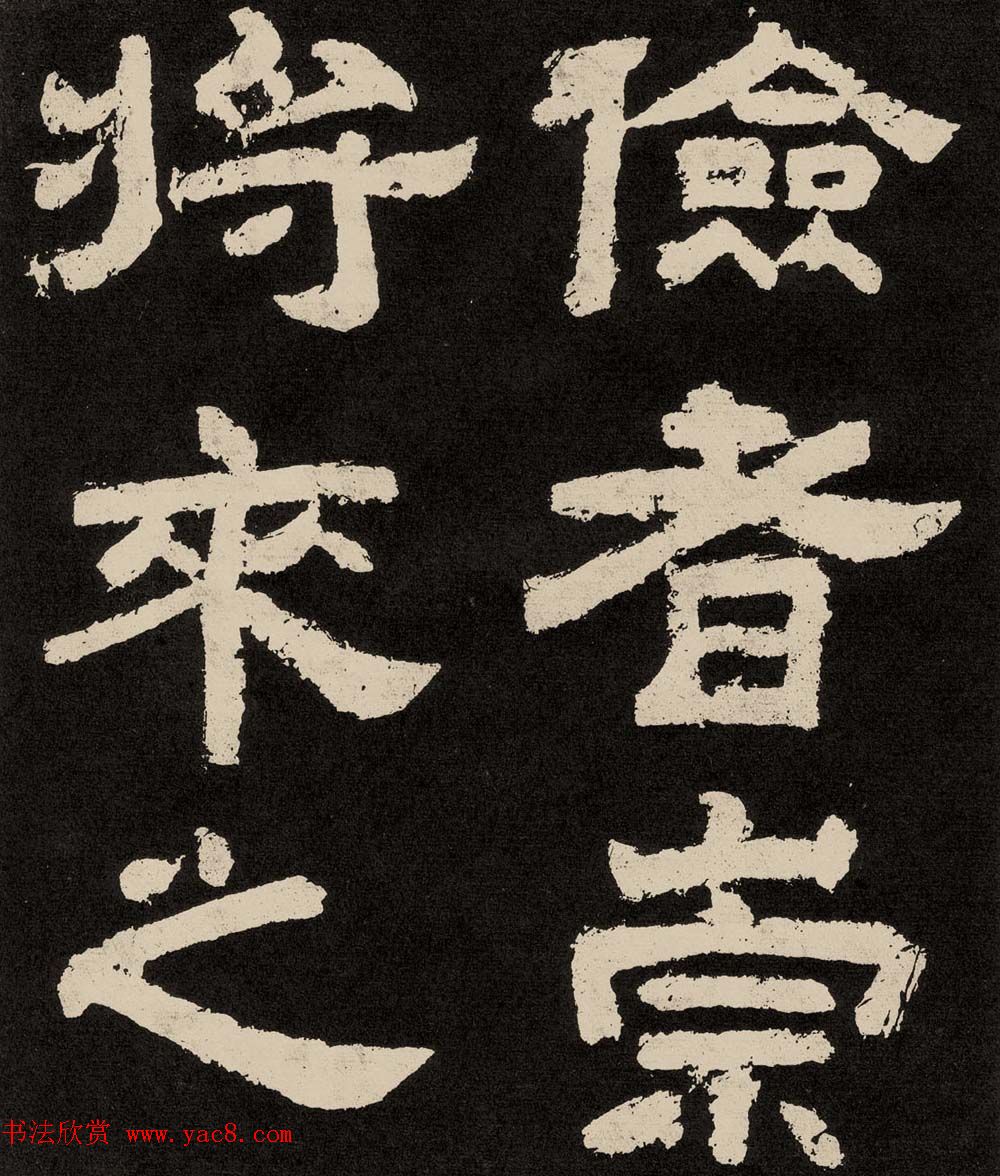 儉者崇
將來之
书法欣赏 www.yac8.com